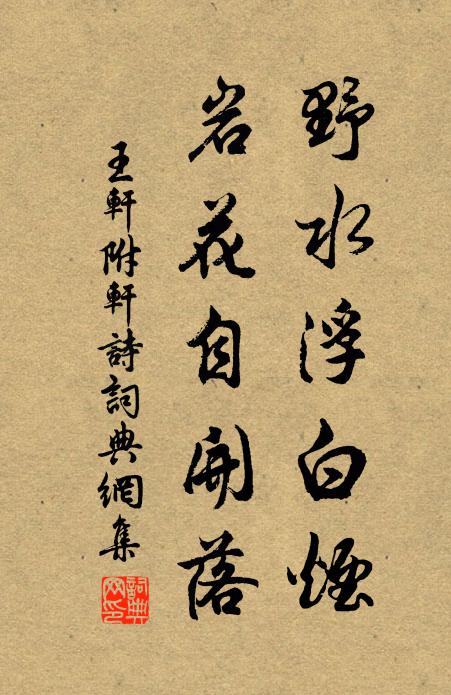 野水浮白煙
岩花自開落
王軒附軒詩詞典網集
詞典網印